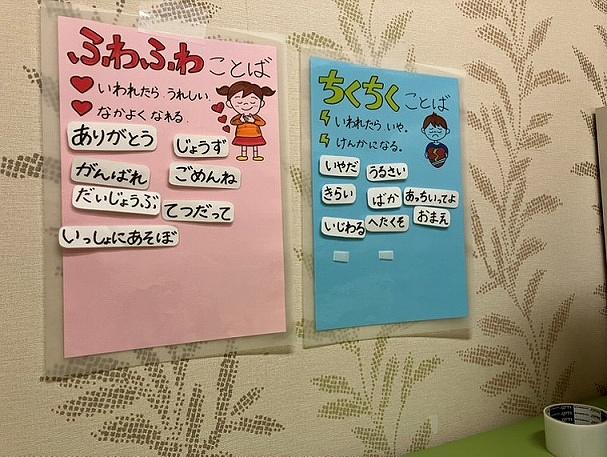 ふわふわことば
いわれたら、うれしい
なかよく なれる.
ありがとう
じょうず
がんばれ
ごめんね
だいじょうぶ
てつだって
いっしょにあそぼ
ちくちくことば
いわれたら、いや。
けんかになる。
いやだ
うるさい
きらい
ばか
あっちいってよ
いじわる
へたくそ
おまえ